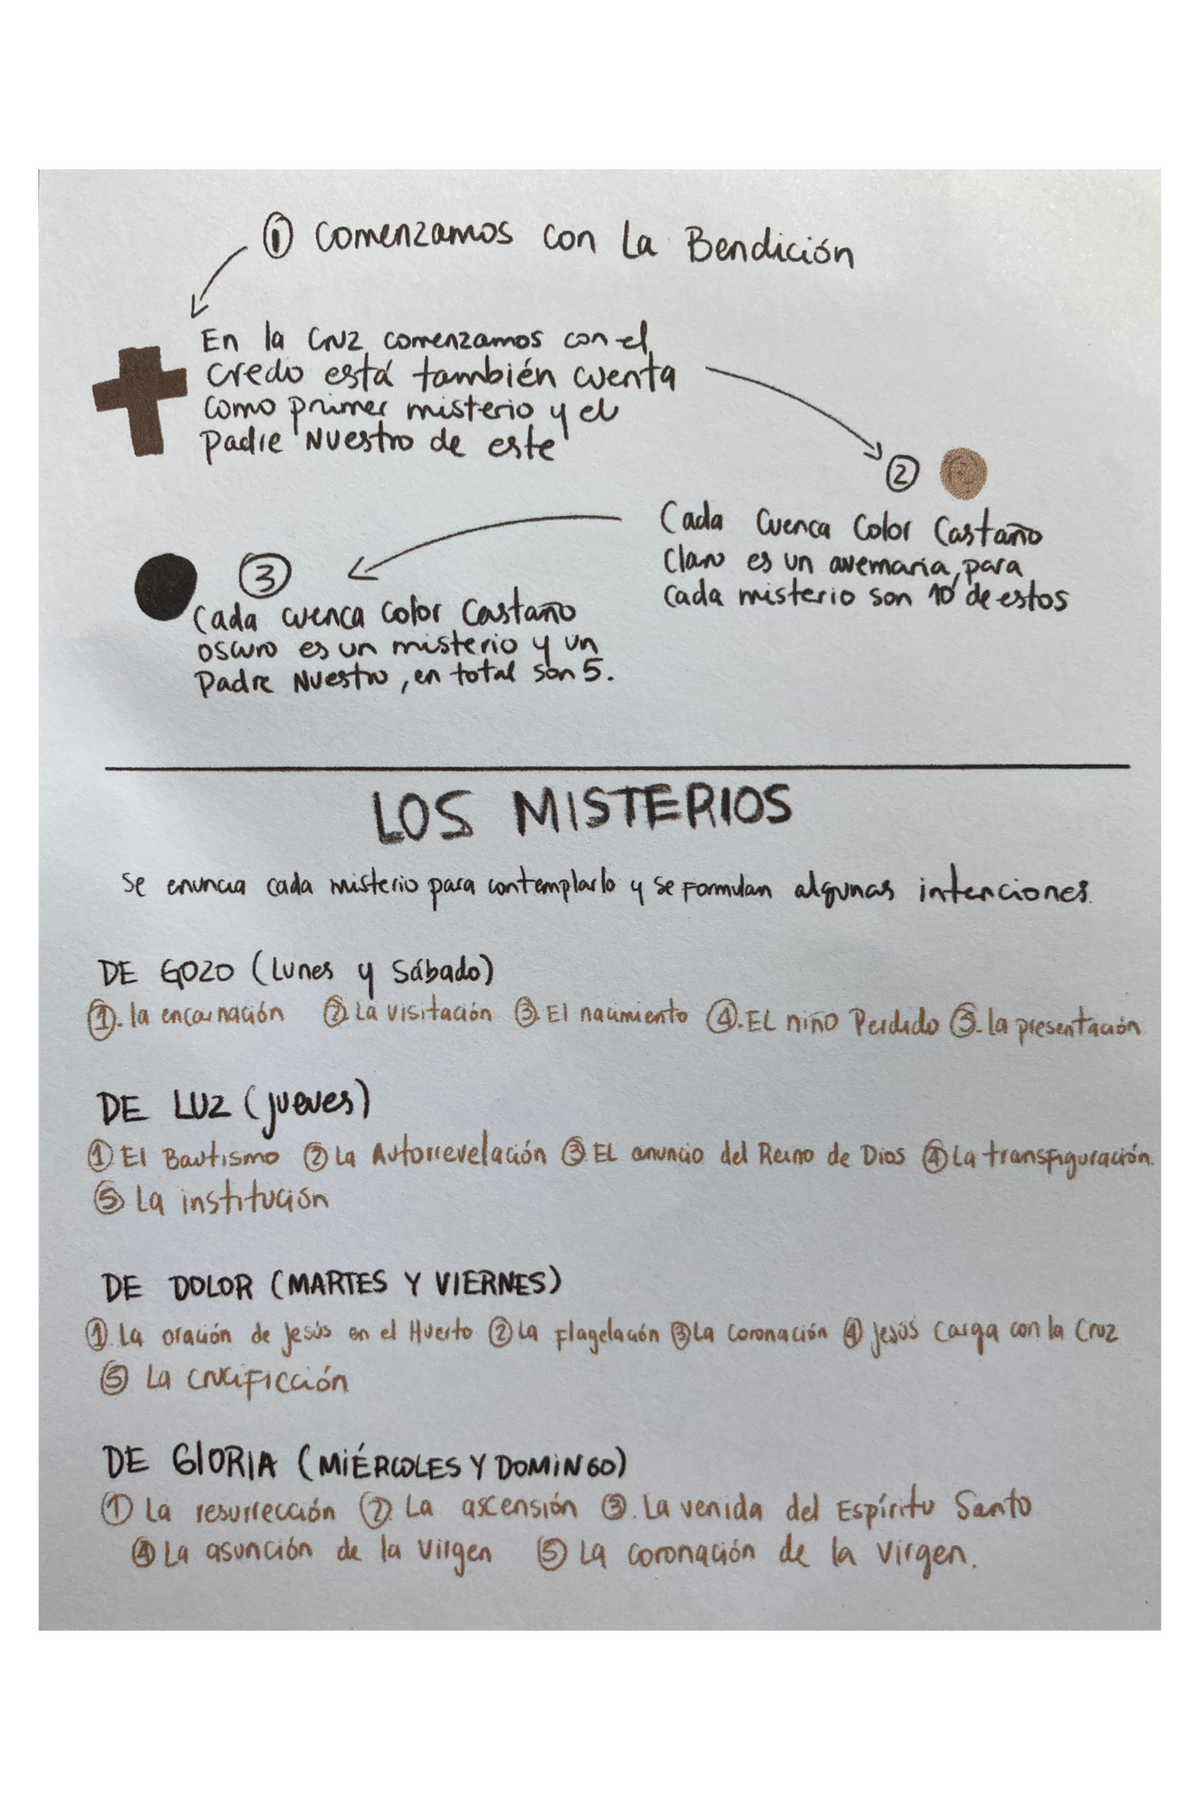 ① Comenzamos con La Bendición
En la Cruz comenzamos con el
Credo está también cuenta
como primer misterio y el
Padre Nuestro de este
②
Cada Cuenca Color Castaño
Claro es un avemaria, para
cada misterio son 10 de estos
③
Cada cuenca color Castaño
oscuro es un misterio y un
Padre Nuestro, en total son 5.
LOS MISTERIOS
Se enuncia cada misterio para contemplarlo y se formulan algunas intenciones.
DE GOZO (Lunes y Sábado)
①. la encarnación ②. La visitación ③. El nacimiento ④. EL niño Perdido ⑤. la presentación
DE LUZ (jueves)
① El Bautismo ② La Autorrevelación ③ EL anuncio del Reino de Dios ④ La transfiguración.
⑤ La institución
DE DOLOR (MARTES Y VIERNES)
①. La oración de Jesús en el Huerto ② La flagelación ③ La coronación ④ Jesús Carga con la Cruz
⑤ La crucificción
DE GlORIA (MIÉRCOLES Y DOMINGO)
① La resurrección ②. La ascensión ③. La venida del Espíritu Santo
④ La asunción de la Virgen ⑤ La coronación de la Virgen.